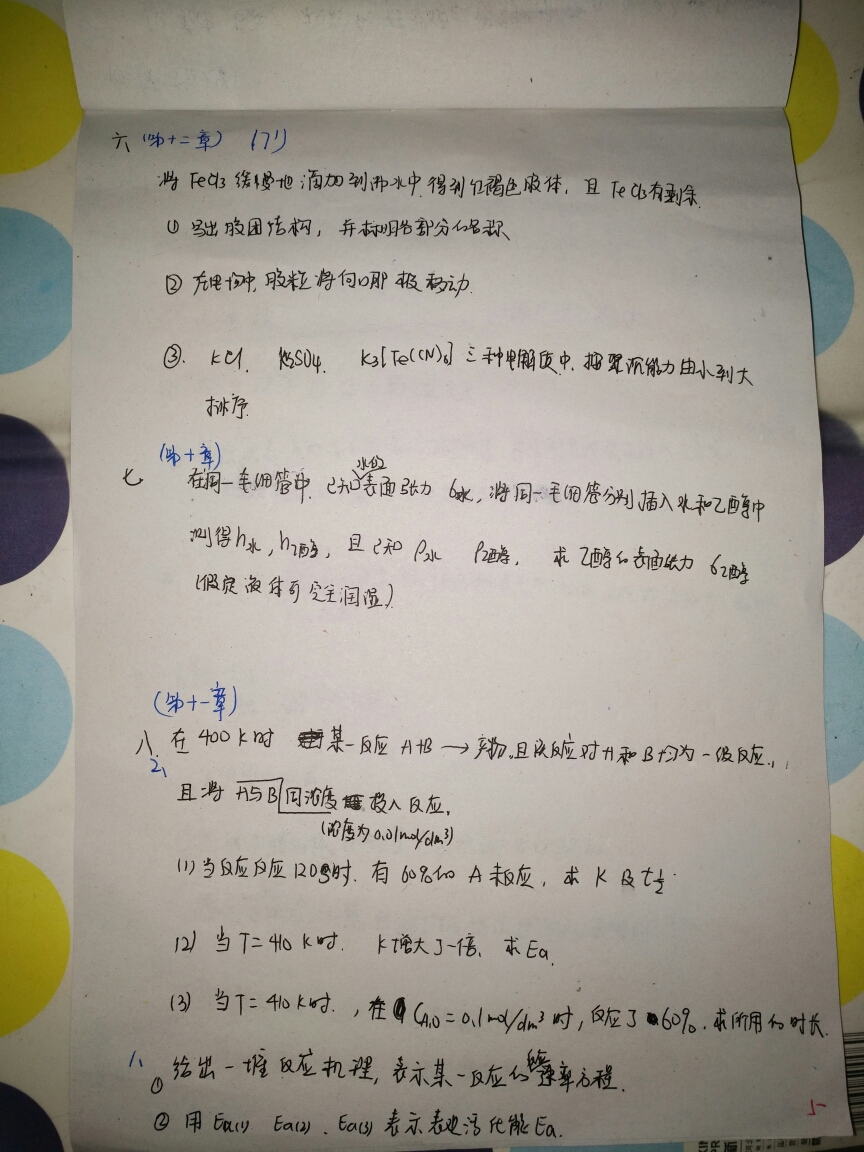 六 (第十二章) (7')
将 FeCl3 缓慢地滴加到沸水中 得到红褐色胶体, 且 FeCl3有剩余
① 写出胶团结构, 并标明各部分的名称
② 在电场中, 胶粒将向哪极移动.
③. KCl. K2SO4. K3[Fe(CN)6] 三种电解质中. 按聚沉能力由小到大
排序.
(第十章)
七 在同一毛细管中. 已知水的表面张力 σ水, 将同一毛细管分别插入水和乙醇中
测得h水, h乙醇, 且已知 ρ水 ρ乙醇, 求乙醇的表面张力 σ乙醇
(假定液体可完全润湿)
(第十一章)
八. 在 400 K时 某一反应 A+B → 产物, 且该反应对A和B均为一级反应.,
2, 且将 A与B同浓度 投入反应,
(浓度为0.01mol/dm³)
(1) 当反应反应120s时. 有60%的 A 未反应, 求 K 及 t½.
(2) 当 T=410 K时. K增大了一倍. 求 Ea.
(3) 当 T=410K时., 在 CA,0=0.1mol/dm³时, 反应了60%. 求所用的时长.
1, ① 给出一堆反应机理, 表示某一反应的速率方程.
② 用 Ea(1) Ea(2). Ea(3) 表示表观活化能Ea.
5